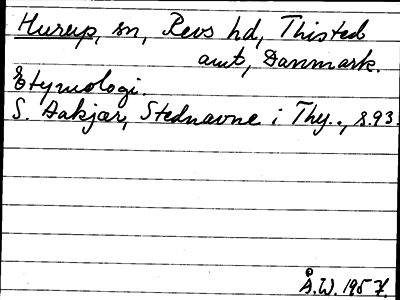 Hurup, sn, Revs hd, Thisted
amt, Danmark.
Etymologi.
S. Aakjær, Stednavne i Thy., s.93.
Å.W. 1957.